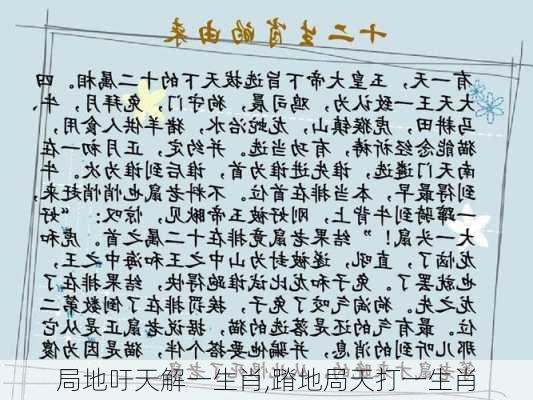 十二生肖的由来
有一天，玉皇大帝下旨选拔天下的十二属相。四
大天王一致认为，鸡司晨，狗守门，兔拜月，牛、
马耕田，虎猴镇山，龙蛇治水，猪羊供人食用，
猫能念经祈祷，有功当选。并约定，正月初一在
南天门遴选，谁先进谁为首，谁后到谁为次。牛
到得最早，本当排在首位。不料老鼠也悄悄赶来，
一蹿骑到牛背上，刚好被玉帝瞅见，惊叹：“好
大一头鼠！”结果老鼠竟排在十二属之首。虎和
龙恼了，直吼，遂被封为山中之王和海中之王，
也就罢了。兔子和龙比试谁跑得快，结果排在了
龙之先。狗淘气咬了兔子，挨罚排在了倒数第二
位。最有气的还是落选的猫，据说老鼠正是从它
那儿听到的消息，并骗他要搭个伴，猫是因为傻
局地吁天解一生肖,蹐地局天打一生肖